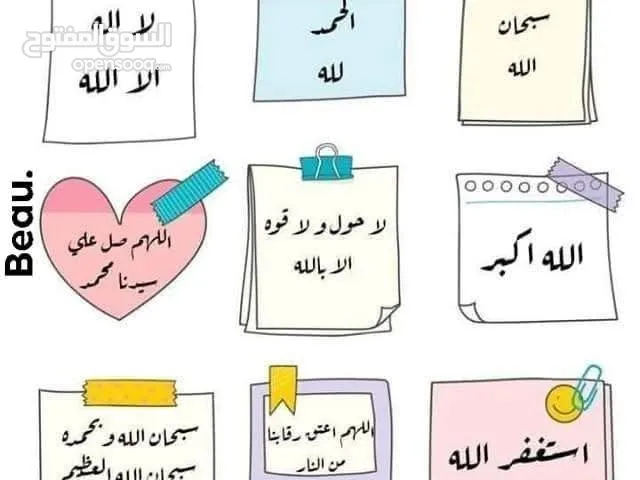 سبحان
الله
الحمد
لله
لا اله
الا الله
السوق المفتوح
opensooq.com
الله اكبر
لا حول و لا قوه
الا بالله
اللهم صل علي
سيدنا محمد
Beau.
استغفر الله
اللهم اعتق رقابنا
من النار
سبحان الله و بحمده
سبحان الله العظيم